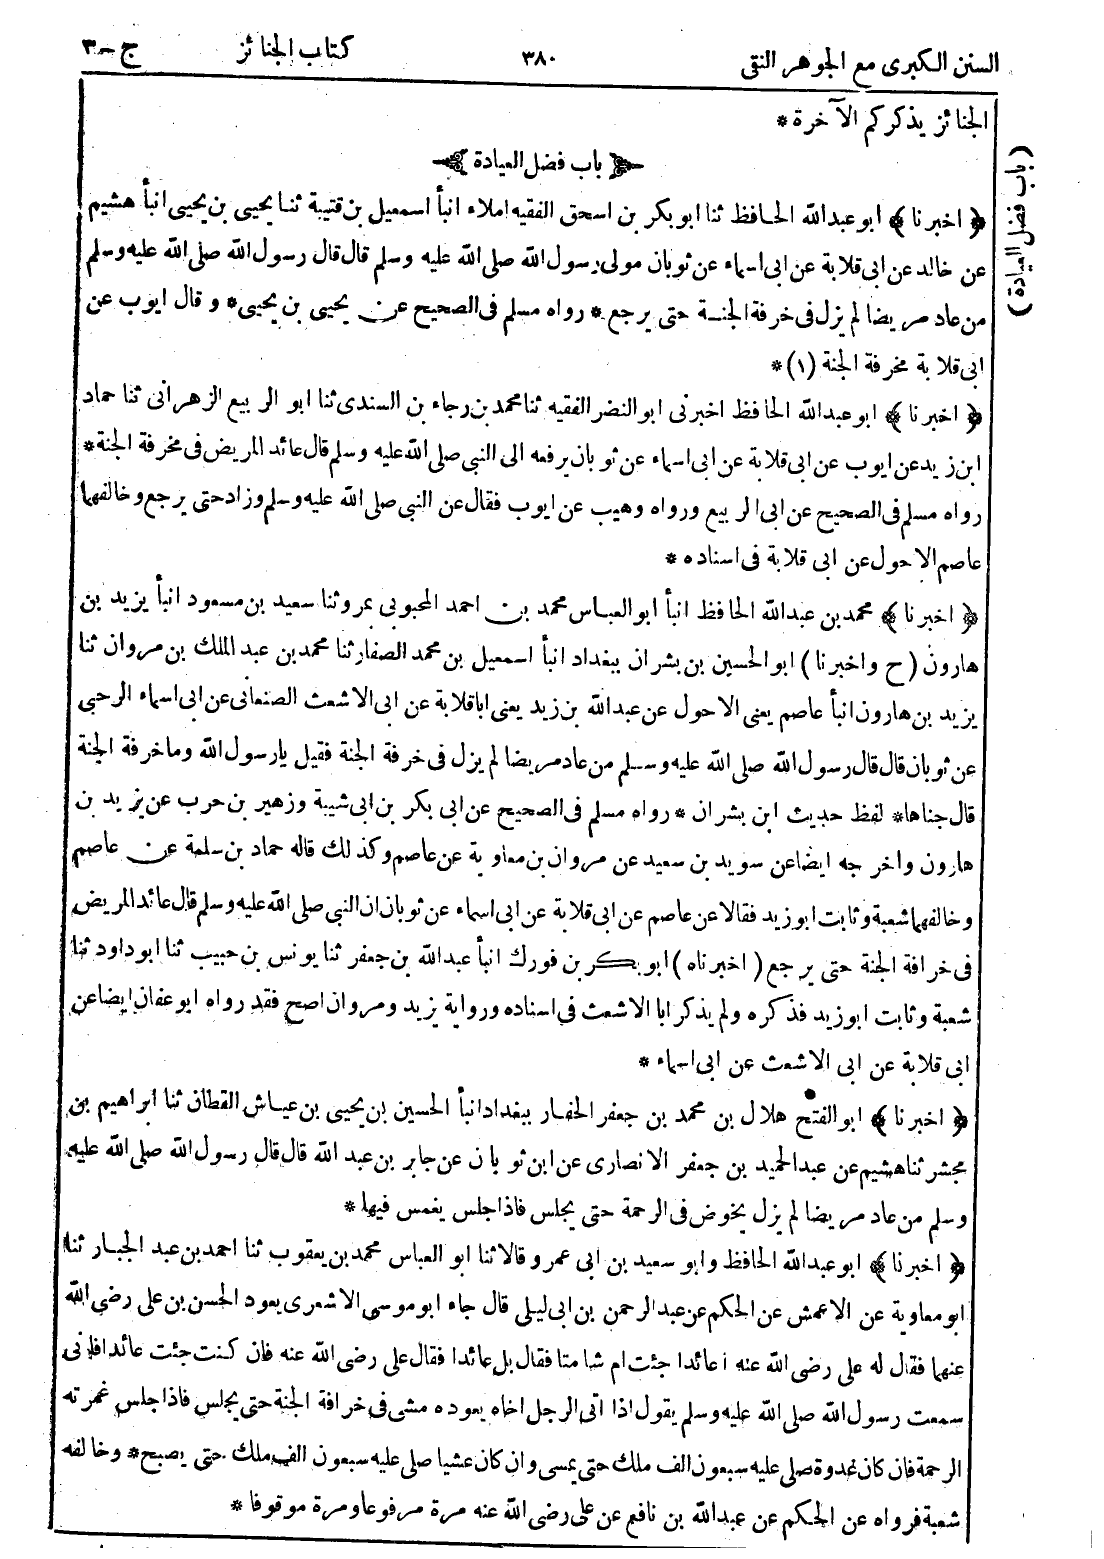 السنن الكبرى مع الجوهر النقى ٣٨٠ كتاب الجنائز ج-٣
الجنائز يذكركم الآخرة *
باب فضل العيادة
(باب فضل العيادة)
﴿ اخبرنا ﴾ ابو عبد الله الحافظ ثنا ابو بكر بن اسحق الفقيه املاء انبأ اسمعيل بن قتيبة ثنا يحيى بن يحيى انبأ هشيم
عن خالد عن ابى قلابة عن ابى اسماء عن ثوبان مولى رسول الله صلى الله عليه وسلم قال قال رسول الله صلى الله عليه وسلم
من عاد مريضا لم يزل فى خرفة الجنة حتى يرجع * رواه مسلم فى الصحيح عن يحيى بن يحيى * و قال ايوب عن
ابى قلابة مخرفة الجنة (١) *
﴿ اخبرنا ﴾ ابو عبد الله الحافظ اخبرنى ابو النضر الفقيه ثنا محمد بن رجاء بن السندى ثنا ابو الربيع الزهرانى ثنا حماد
ابن زيد عن ايوب عن ابى قلابة عن ابى اسماء عن ثوبان يرفعه الى النبى صلى الله عليه وسلم قال عائد المريض فى مخرفة الجنة *
رواه مسلم فى الصحيح عن ابى الربيع ورواه وهيب عن ايوب فقال عن النبى صلى الله عليه وسلم وزاد حتى يرجع وخالفهما
عاصم الاحول عن ابى قلابة فى اسناده *
﴿ اخبرنا ﴾ محمد بن عبد الله الحافظ انبأ ابو العباس محمد بن احمد المحبوبى بمرو ثنا سعيد بن مسعود انبأ يزيد بن
هارون (ح واخبرنا) ابو الحسين بن بشران ببغداد انبأ اسمعيل بن محمد الصفار ثنا محمد بن عبد الملك بن مروان ثنا
يزيد بن هارون انبأ عاصم يعنى الاحول عن عبد الله بن زيد يعنى ابا قلابة عن ابى الاشعث الصنعانى عن ابى اسماء الرحبى
عن ثوبان قال قال رسول الله صلى الله عليه وسلم من عاد مريضا لم يزل فى خرفة الجنة فقيل يا رسول الله وما خرفة الجنة
قال جناها * لفظ حديث ابن بشران * رواه مسلم فى الصحيح عن ابى بكر بن ابى شيبة وزهير بن حرب عن يزيد بن
هارون واخرجه ايضا عن سويد بن سعيد عن مروان بن معاوية عن عاصم وكذلك قاله حماد بن سلمة عن عاصم
وخالفهما شعبة وثابت ابو زيد فقالا عن عاصم عن ابى قلابة عن ابى اسماء عن ثوبان ان النبى صلى الله عليه وسلم قال عائد المريض
فى خرافة الجنة حتى يرجع (اخبرناه) ابو بكر بن فورك انبأ عبد الله بن جعفر ثنا يونس بن حبيب ثنا ابو داود ثنا
شعبة وثابت ابو زيد فذكره ولم يذكر ابا الاشعث فى اسناده ورواية يزيد ومروان اصح فقد رواه ابو عفان ايضا عن
ابى قلابة عن ابى الاشعث عن ابى اسماء *
﴿ اخبرنا ﴾ ابو الفتح هلال بن محمد بن جعفر الحفار ببغداد انبأ الحسين بن يحيى بن عياش القطان ثنا ابراهيم بن
مجشر ثنا هشيم عن عبد الحميد بن جعفر الانصارى عن ابن ثوبان عن جابر بن عبد الله قال قال رسول الله صلى الله عليه
وسلم من عاد مريضا لم يزل يخوض فى الرحمة حتى يجلس فاذا جلس يغمس فيها *
﴿ اخبرنا ﴾ ابو عبد الله الحافظ وابو سعيد بن ابى عمرو قالا ثنا ابو العباس محمد بن يعقوب ثنا احمد بن عبد الجبار ثنا
ابو معاوية عن الاعمش عن الحكم عن عبد الرحمن بن ابى ليلى قال جاء ابو موسى الاشعرى يعود الحسن بن على رضى الله
عنهما فقال له على رضى الله عنه أعائدا جئت ام شامتا فقال بل عائدا فقال على رضى الله عنه فان كنت جئت عائدا فانى
سمعت رسول الله صلى الله عليه وسلم يقول اذا اتى الرجل اخاه يعوده مشى فى خرافة الجنة حتى يجلس فاذا جلس غمرته
الرحمة فان كان غدوة صلى عليه سبعون الف ملك حتى يمسى وان كان عشيا صلى عليه سبعون الف ملك حتى يصبح * وخالفه
شعبة فرواه عن الحكم عن عبد الله بن نافع عن على رضى الله عنه مرة مرفوعا ومرة موقوفا *